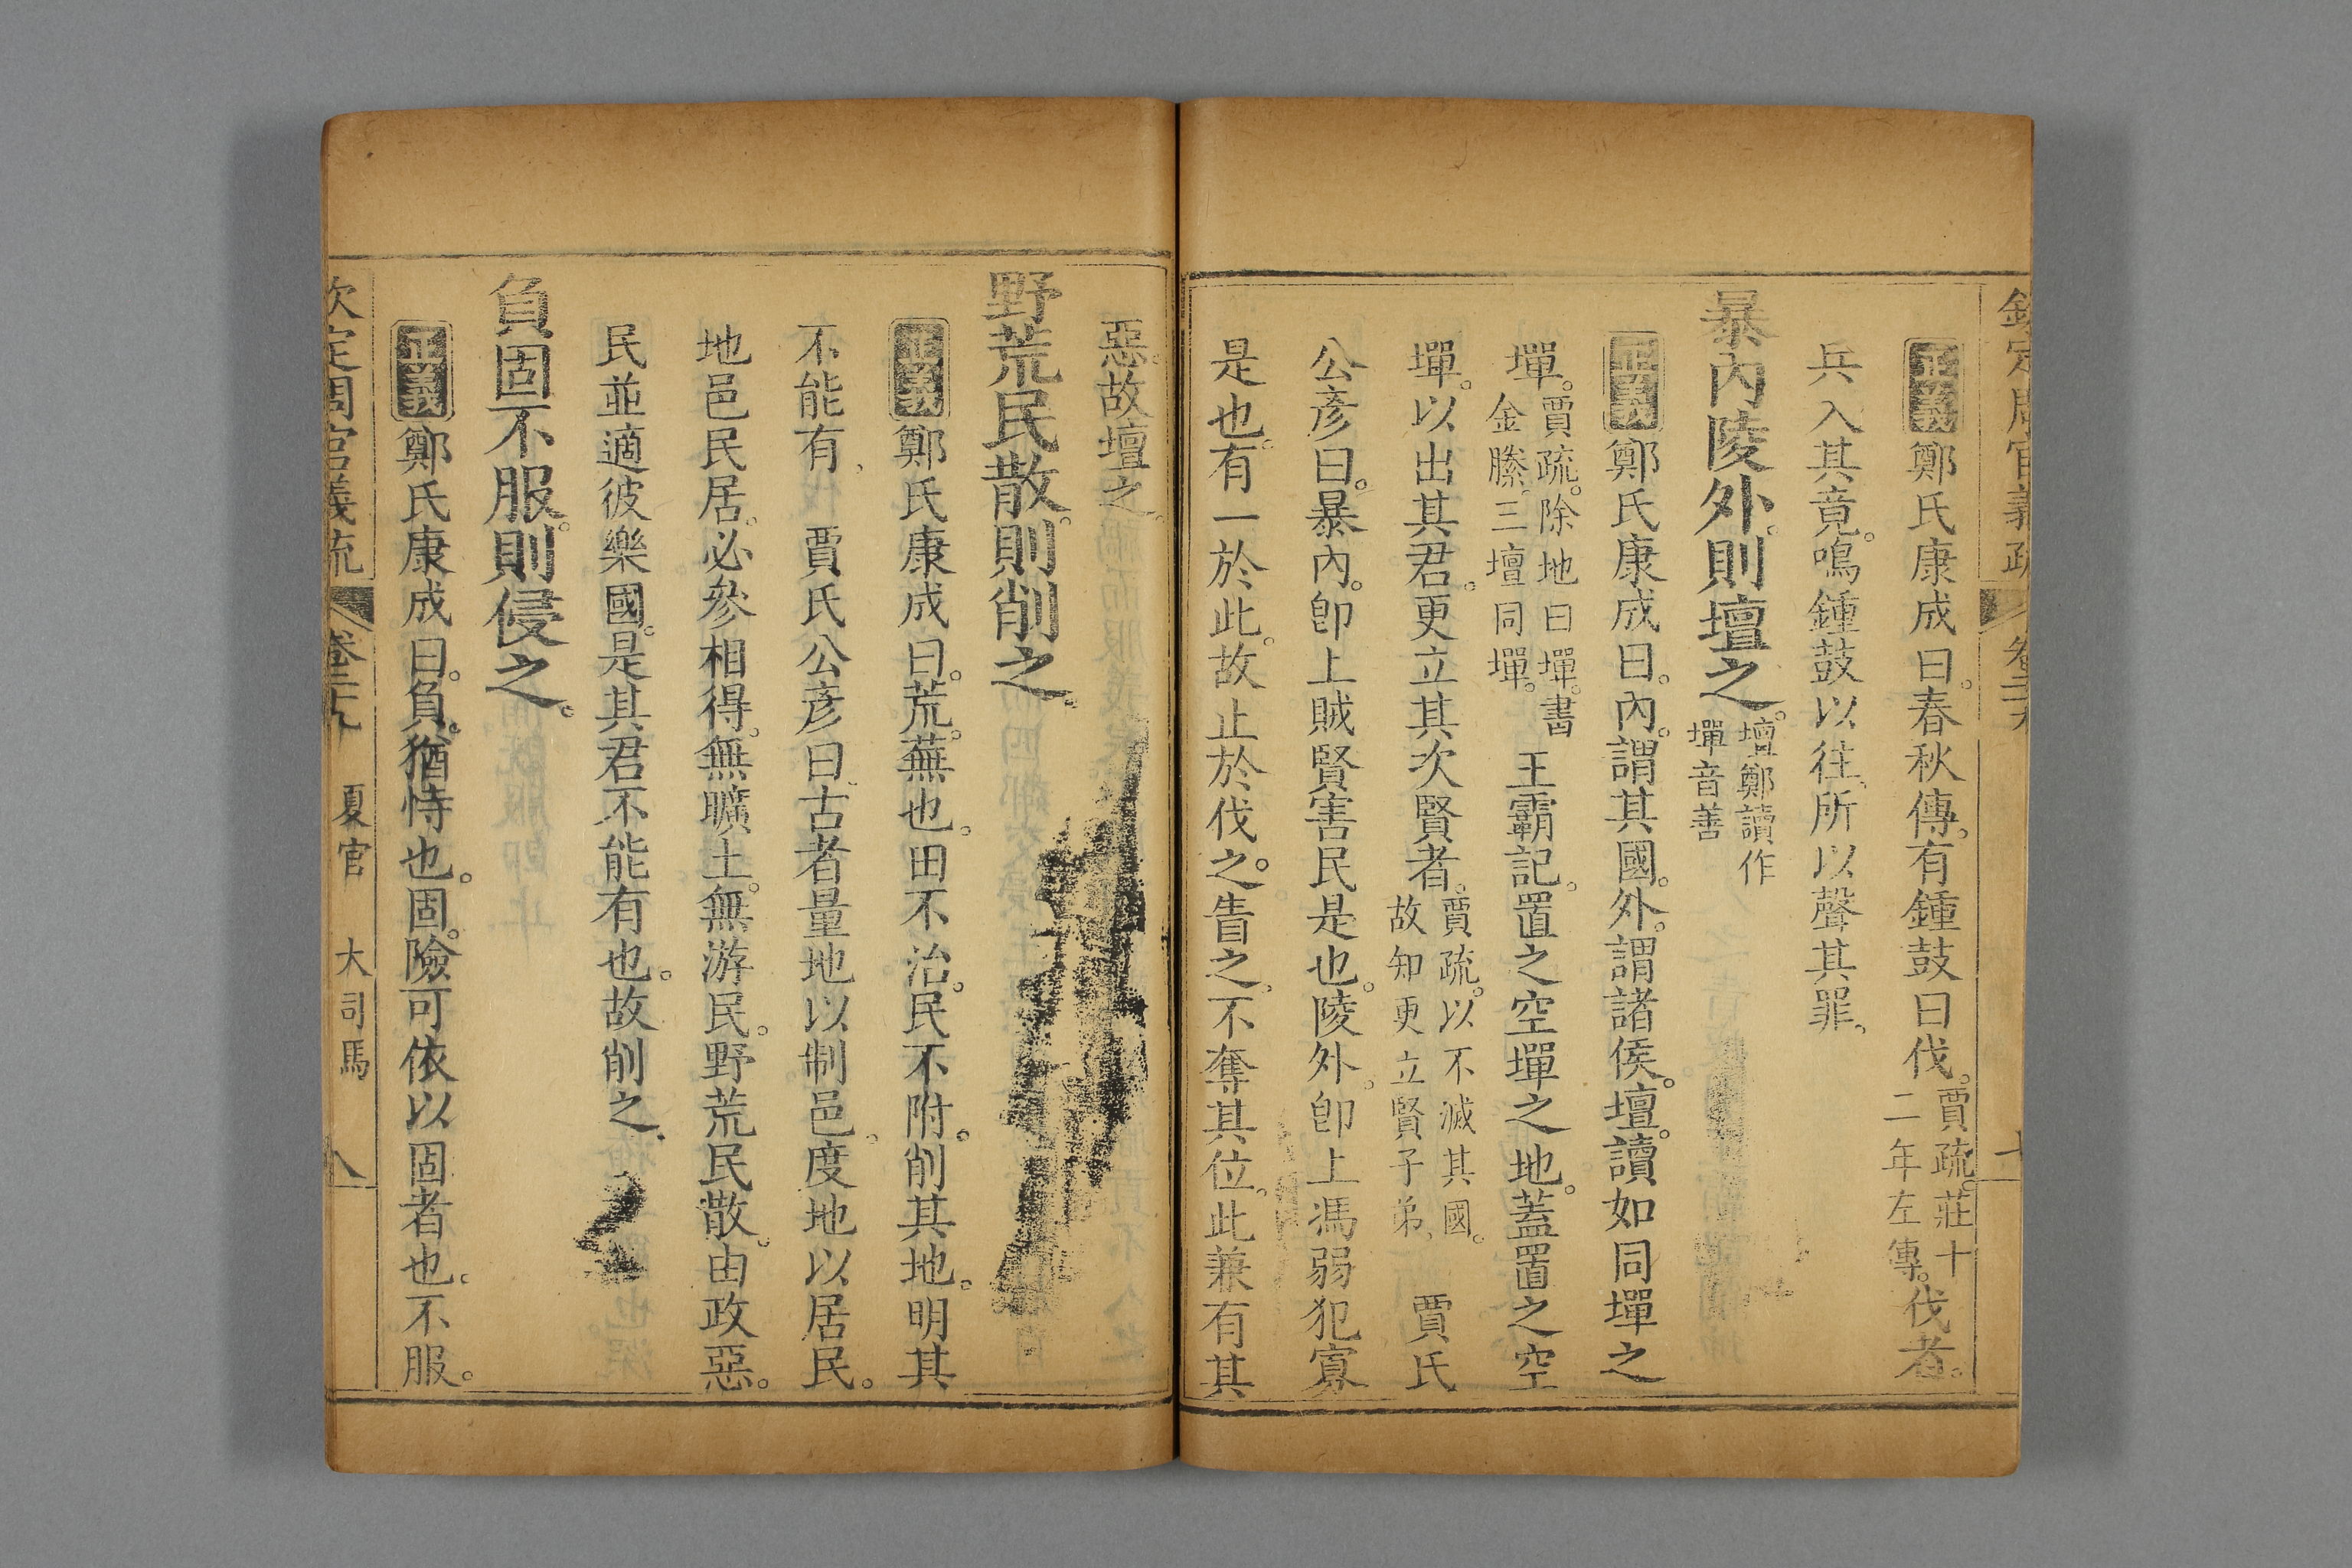 欽定周官義疏
正義鄭氏康成曰。春秋傳。有鍾鼓曰伐。賈疏。莊十二年左傳。伐者。
兵入其竟。鳴鍾鼓以往。所以聲其罪。
暴內陵外。則壇之。壇鄭讀作墠音善
正義鄭氏康成曰。內。謂其國。外。謂諸侯。壇。讀如同墠之
墠。賈疏。除地曰墠。書金縢。三壇同墠。王霸記。置之空墠之地。蓋置之空
墠。以出其君。更立其次賢者。賈疏。以不滅其國。故知更立賢子弟。賈氏
公彥曰。暴內。卽上賊賢害民是也。陵外。卽上馮弱犯寡
是也。有一於此。故止於伐之。眚之。不奪其位。此兼有其
惡。故壇之。
野荒民散。則削之。
正義鄭氏康成曰。荒。蕪也。田不治。民不附。削其地。明其
不能有。賈氏公彥曰。古者量地以制邑。度地以居民。
地邑民居。必參相得。無曠土。無游民。野荒民散。由政惡。
民並適彼樂國。是其君不能有也。故削之。
負固不服。則侵之。
正義鄭氏康成曰。負。猶恃也。固。險可依以固者也。不服。
欽定周官義疏 夏官 大司馬 八